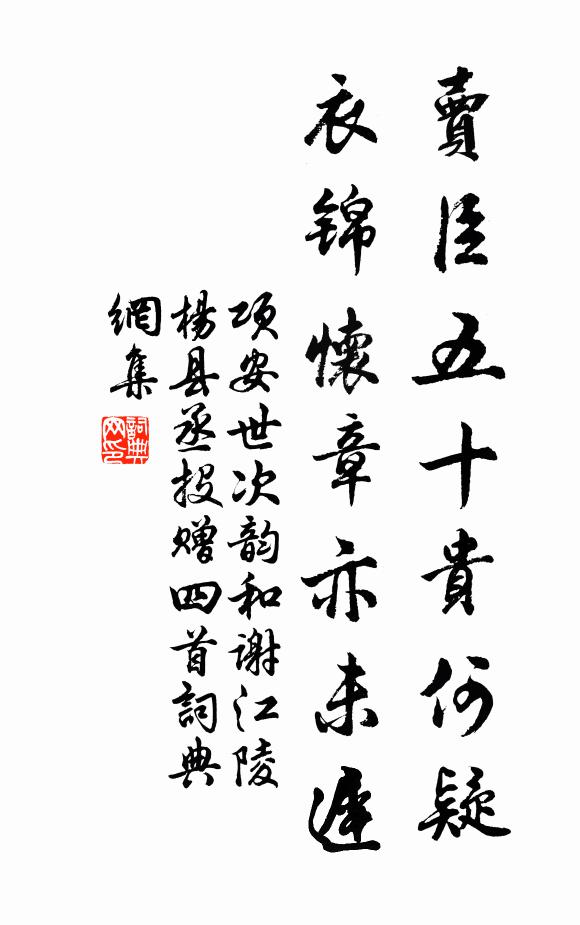 賣臣五十貴何疑
衣錦懷章亦未遲
项安世次韵和谢江陵
楊县丞投赠四首詞典
網集
詞典
网印